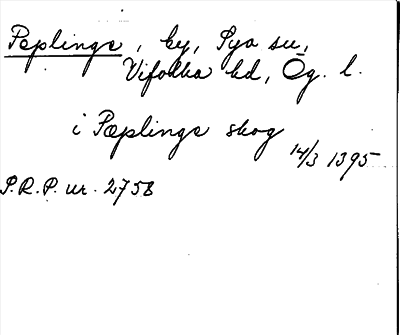 Peplinge, by, Sya sn,
Vifolka hd, Ög. l.
i Pæplinge skog
14/3 1395
P.R.P. nr. 2758